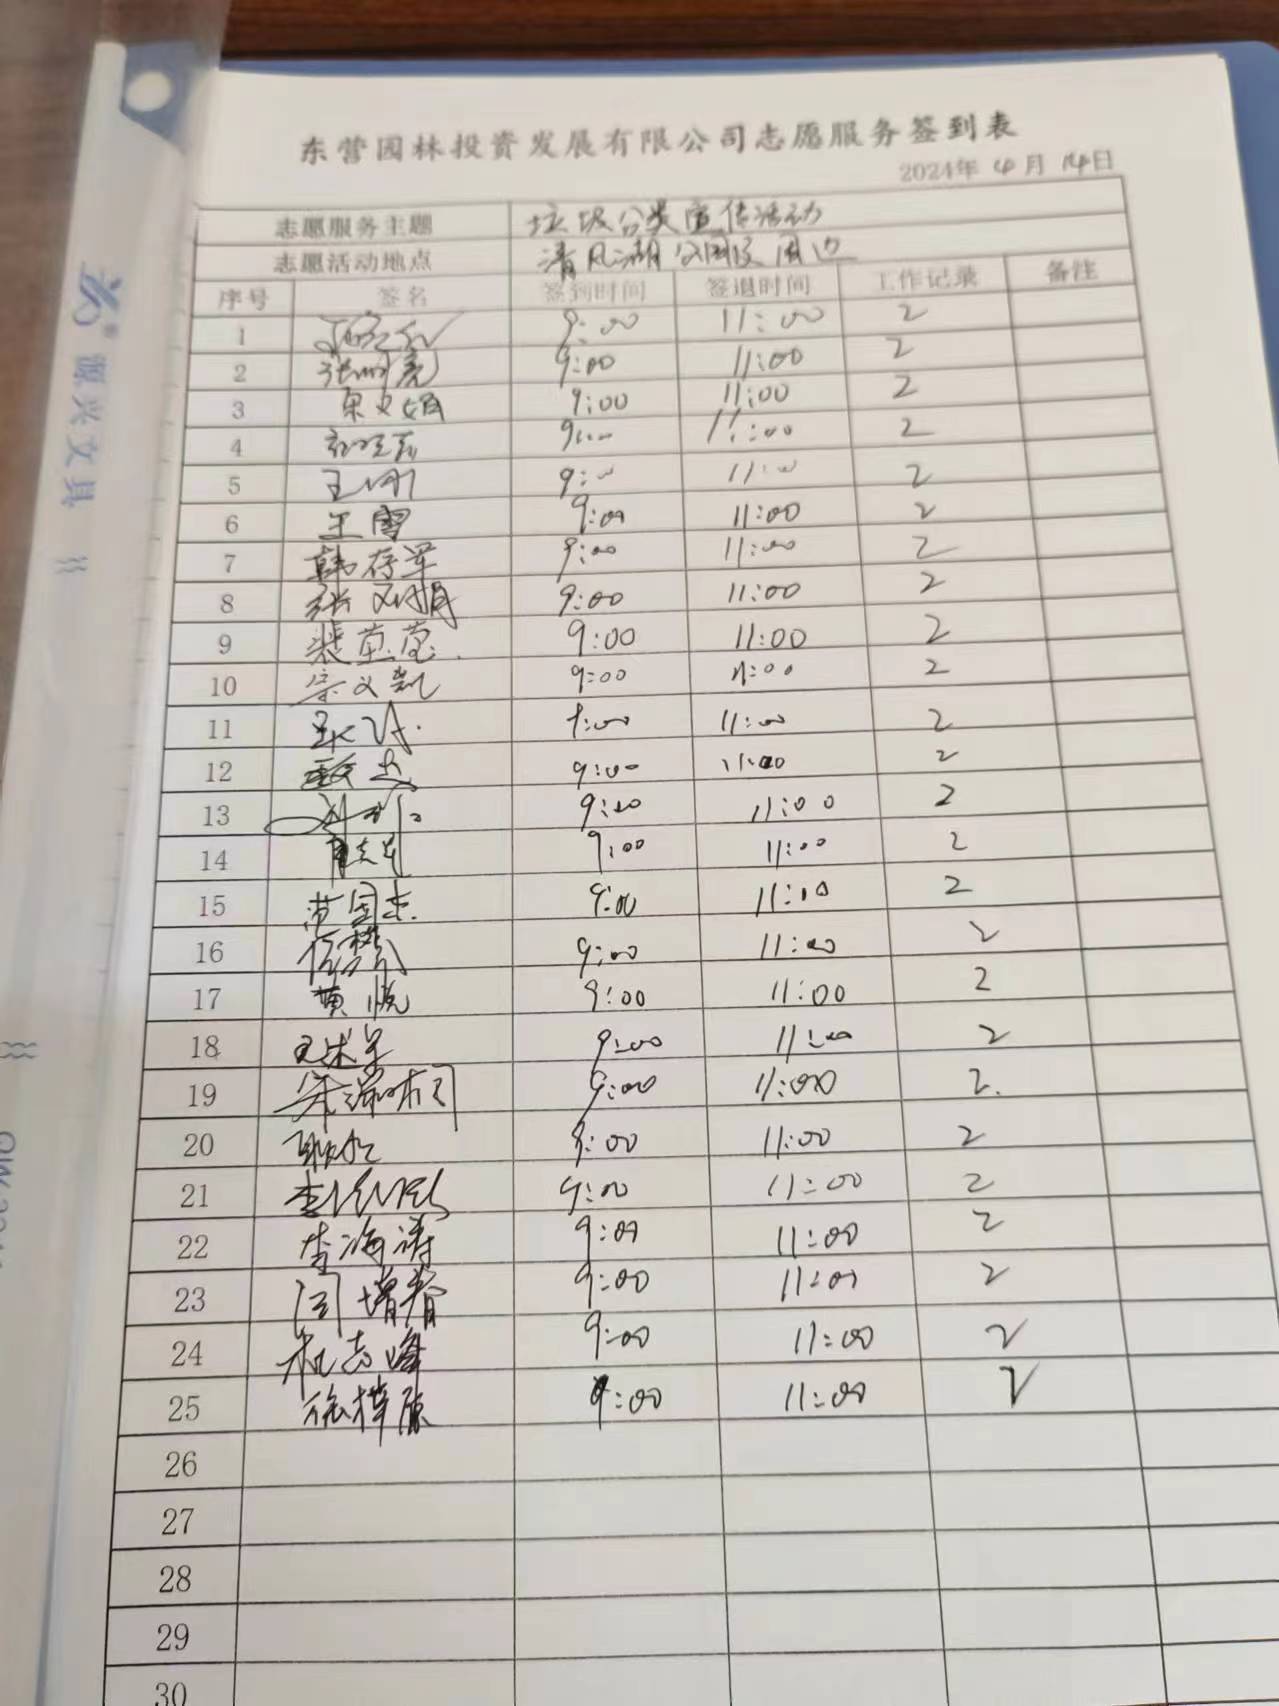 东营园林投资发展有限公司志愿服务签到表
2024年 4月 14日
志愿服务主题 垃圾分类宣传活动
志愿活动地点 清风湖公园及周边
序号 签名 签到时间 签退时间 工作记录 备注
1 9:00 11:00 2
2 9:00 11:00 2
3 9:00 11:00 2
4 9:00 11:00 2
5 9:00 11:00 2
6 王雷 9:00 11:00 2
7 韩存军 9:00 11:00 2
8 张文娟 9:00 11:00 2
9 裴莹莹 9:00 11:00 2
10 宗文凯 9:00 11:00 2
11 9:00 11:00 2
12 9:00 11:00 2
13 9:00 11:00 2
14 9:00 11:00 2
15 范国杰 9:00 11:00 2
16 9:00 11:00 2
17 黄悦 9:00 11:00 2
18 9:00 11:00 2
19 9:00 11:00 2
20 9:00 11:00 2
21 9:00 11:00 2
22 李海涛 9:00 11:00 2
23 闫增春 9:00 11:00 2
24 杭志峰 9:00 11:00 2
25 徐梓原 9:00 11:00 2
26
27
28
29
30
源兴文具